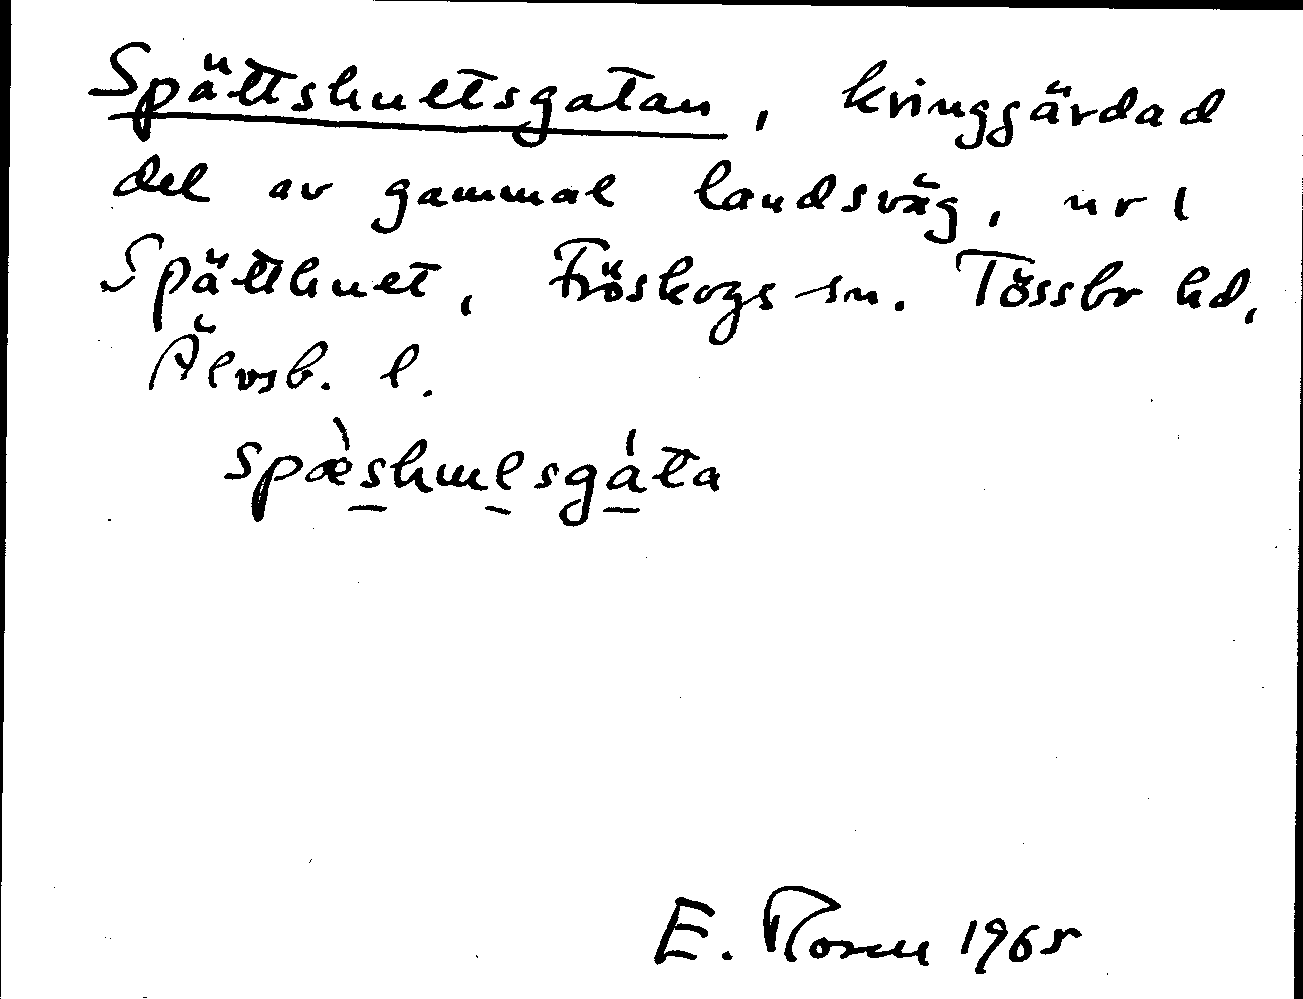 Spättshultsgatan, kringgärdad
del av gammal landsväg, nr 1
Spätthult, Fröskogs sn. Tössbo hd,
Älvsb. l.
spæ̀shulsgáta
E. Rosen 1965